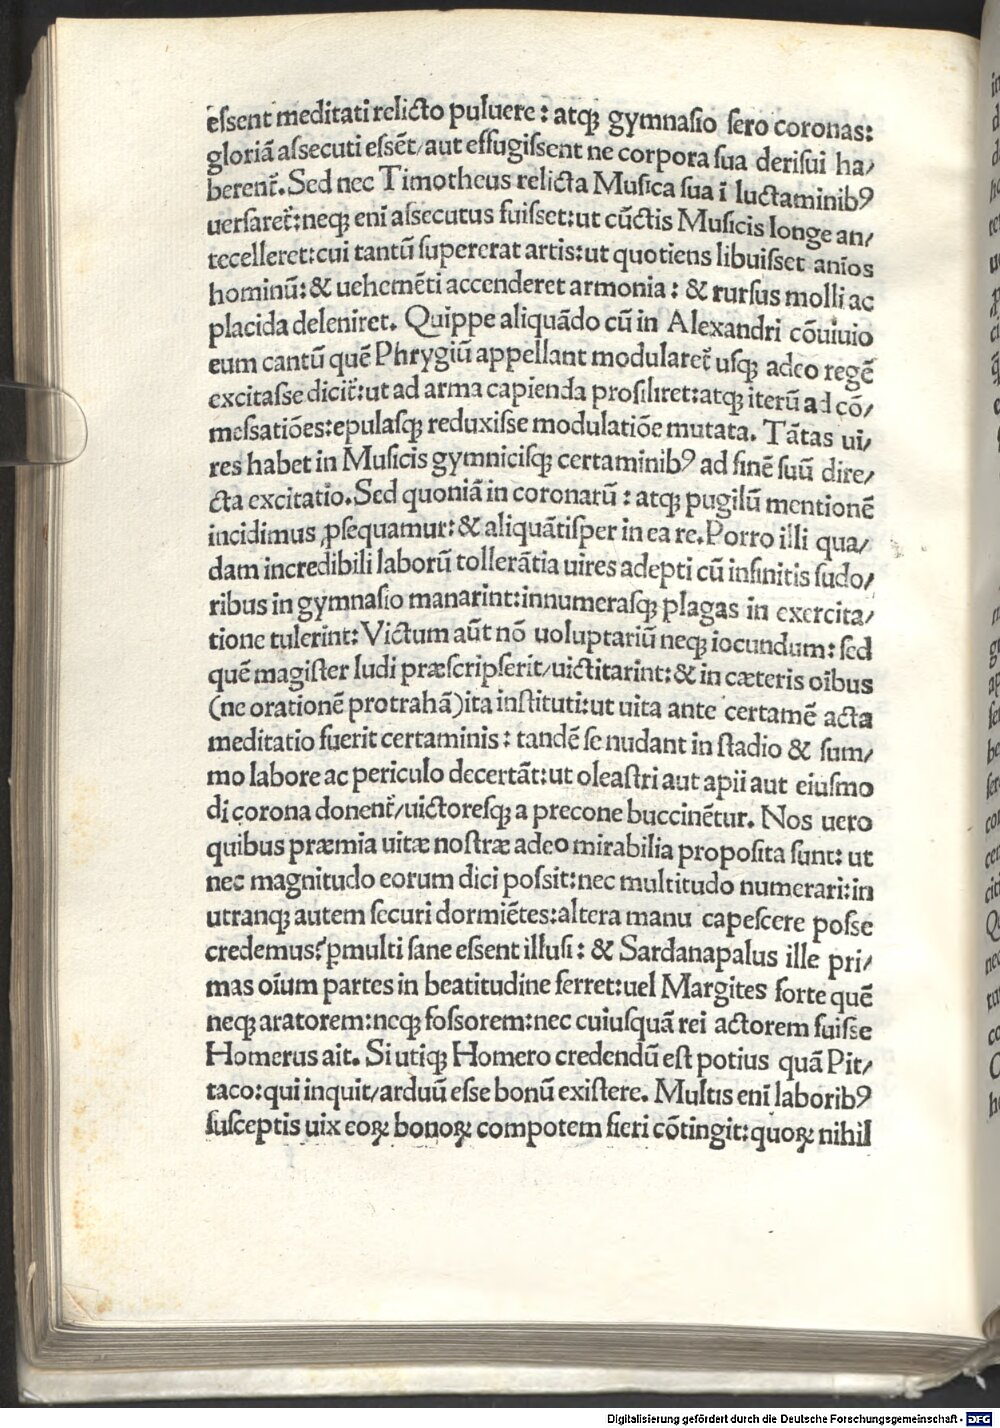 eſsent meditati relicto puluere : atqꝫ gymnaſio ſero coronas:
gloriā aſsecuti eſsēt/aut effugiſsent ne corpora ſua deriſui ha/
berent̃. Sed nec Timotheus relicta Muſica ſua ī luctaminibꝰ
uerſaret̃: neqꝫ enī aſsecutus fuiſset: ut cūctis Muſicis longe an/
tecelleret: cui tantū ſupererat artis: ut quotiens libuiſset anīos
hominū: & uehemēti accenderet armonia : & rurſus molli ac
placida deleniret. Quippe aliquādo cū in Alexandri cōuiuio
eum cantū quē Phrygiū appellant modularet̃ uſqꝫ adeo regē
excitaſse dicit̃: ut ad arma capienda proſiliret: atqꝫ iterū ad cō/
meſsatiōes: epulaſqꝫ reduxiſse modulatiōe mutata. Tātas ui/
res habet in Muſicis gymniciſqꝫ certaminibꝰ ad finē ſuū dire/
cta excitatio. Sed quoniā in coronarū : atqꝫ pugilū mentionē
incidimus ꝓſequamur: & aliquātiſper in ea re. Porro illi qua/
dam incredibili laborū tollerātia uires adepti cū infinitis ſudo/
ribus in gymnaſio manarint: innumeraſqꝫ plagas in exercita/
tione tulerint: Victum aūt nō uoluptariū neqꝫ iocundum: ſed
quē magiſter ludi præſcripſerit/uictitarint: & in cæteris oībus
(ne orationē protrahā) ita inſtituti: ut uita ante certamē acta
meditatio fuerit certaminis : tandē ſe nudant in ſtadio & ſum/
mo labore ac periculo decertāt: ut oleaſtri aut apii aut eiuſmo
di corona donent̃/uictoreſqꝫ a precone buccinētur. Nos uero
quibus præmia uitæ noſtræ adeo mirabilia propoſita ſunt: ut
nec magnitudo eorum dici poſsit: nec multitudo numerari: in
utranqꝫ autem ſecuri dormiētes: altera manu capeſcere poſse
credemus? ꝑmulti ſane eſsent illuſi : & Sardanapalus ille pri/
mas oīum partes in beatitudine ferret: uel Margites forte quē
neqꝫ aratorem: neqꝫ foſsorem: nec cuiuſquā rei actorem fuiſse
Homerus ait. Si utiqꝫ Homero credendū eſt potius quā Pit/
taco: qui inquit/arduū eſse bonū exiſtere. Multis enī laboribꝰ
ſuſceptis uix eoꝝ bonoꝝ compotem fieri cōtingit: quoꝝ nihil
Digitalisierung gefördert durch die Deutsche Forschungsgemeinschaft - DFG